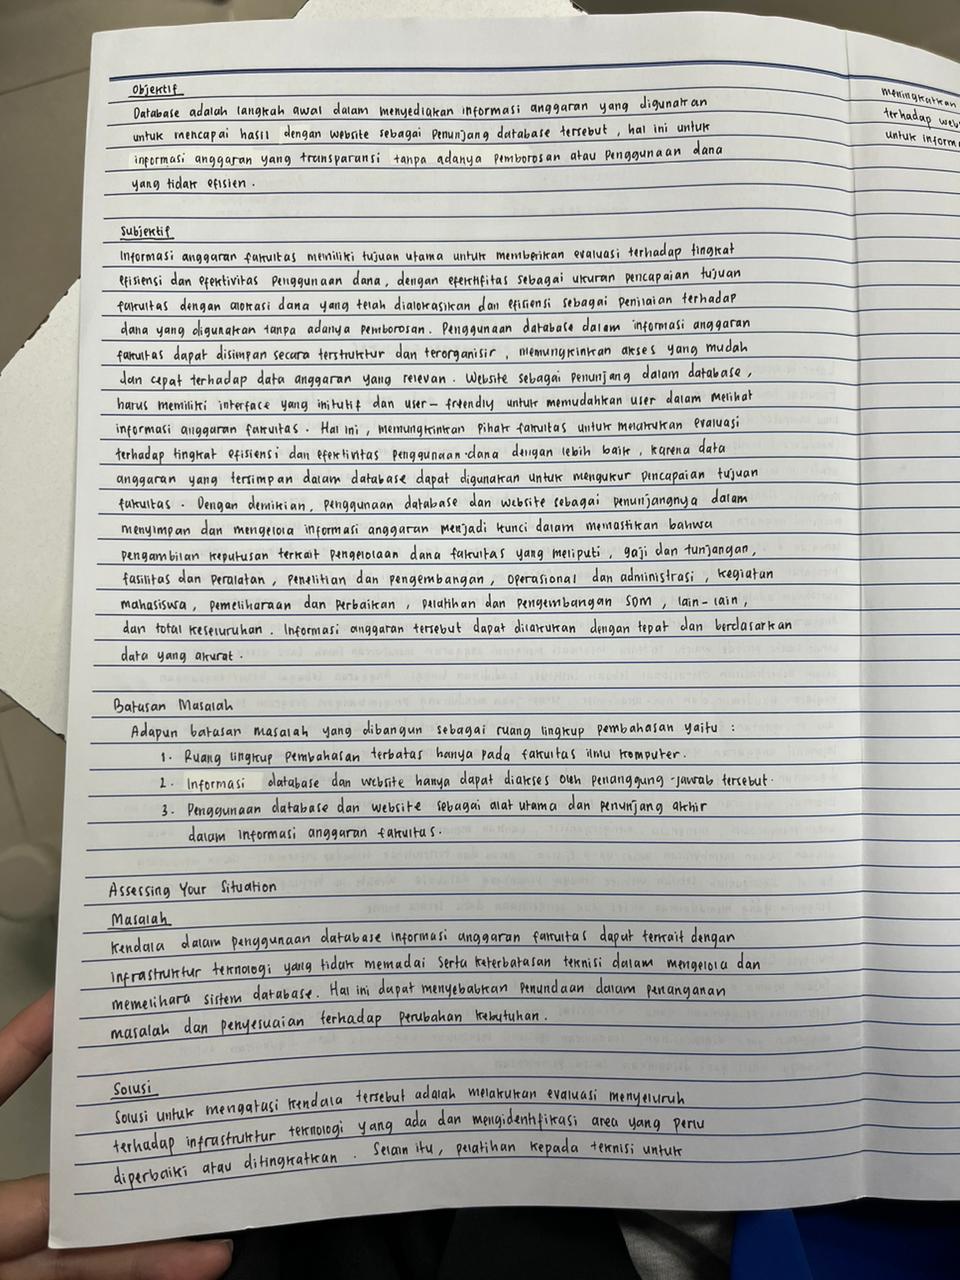 Objektif
Database adalah langkah awal dalam menyediakan informasi anggaran yang digunakan
untuk mencapai hasil dengan website sebagai penunjang database tersebut, hal ini untuk
informasi anggaran yang transparansi tanpa adanya pemborosan atau penggunaan dana
yang tidak efisien.
Subjektif
Informasi anggaran fakultas memiliki tujuan utama untuk memberikan evaluasi terhadap tingkat
efisiensi dan efektivitas penggunaan dana, dengan efektifitas sebagai ukuran pencapaian tujuan
fakultas dengan alokasi dana yang telah dialokasikan dan efisiensi sebagai penilaian terhadap
dana yang digunakan tanpa adanya pemborosan. Penggunaan database dalam informasi anggaran
fakultas dapat disimpan secara terstruktur dan terorganisir, memungkinkan akses yang mudah
dan cepat terhadap data anggaran yang relevan. Website sebagai penunjang dalam database,
harus memiliki interface yang initutif dan user-friendly untuk memudahkan user dalam melihat
informasi anggaran fakultas. Hal ini, memungkinkan pihak fakultas untuk melakukan evaluasi
terhadap tingkat efisiensi dan efektivitas penggunaan dana dengan lebih baik, karena data
anggaran yang tersimpan dalam database dapat digunakan untuk mengukur pencapaian tujuan
fakultas. Dengan demikian, penggunaan database dan website sebagai penunjangnya dalam
menyimpan dan mengelola informasi anggaran menjadi kunci dalam memastikan bahwa
pengambilan keputusan terkait pengelolaan dana fakultas yang meliputi, gaji dan tunjangan,
fasilitas dan peralatan, penelitian dan pengembangan, operasional dan administrasi, kegiatan
mahasiswa, pemeliharaan dan perbaikan, pelatihan dan pengembangan SDM, lain-lain,
dan total keseluruhan. Informasi anggaran tersebut dapat dilakukan dengan tepat dan berdasarkan
data yang akurat.
Batasan Masalah
Adapun batasan masalah yang dibangun sebagai ruang lingkup pembahasan yaitu :
1. Ruang lingkup pembahasan terbatas hanya pada fakultas ilmu komputer.
2. Informasi database dan website hanya dapat diakses oleh penanggung-jawab tersebut.
3. Penggunaan database dan website sebagai alat utama dan penunjang akhir
dalam informasi anggaran fakultas.
Assessing Your Situation
Masalah
Kendala dalam penggunaan database informasi anggaran fakultas dapat terkait dengan
infrastruktur teknologi yang tidak memadai serta keterbatasan teknisi dalam mengelola dan
memelihara sistem database. Hal ini dapat menyebabkan penundaan dalam penanganan
masalah dan penyesuaian terhadap perubahan kebutuhan.
Solusi
Solusi untuk mengatasi kendala tersebut adalah melakukan evaluasi menyeluruh
terhadap infrastruktur teknologi yang ada dan mengidentifikasi area yang perlu
diperbaiki atau ditingkatkan. Selain itu, pelatihan kepada teknisi untuk
meningkatkan
terhadap
untuk